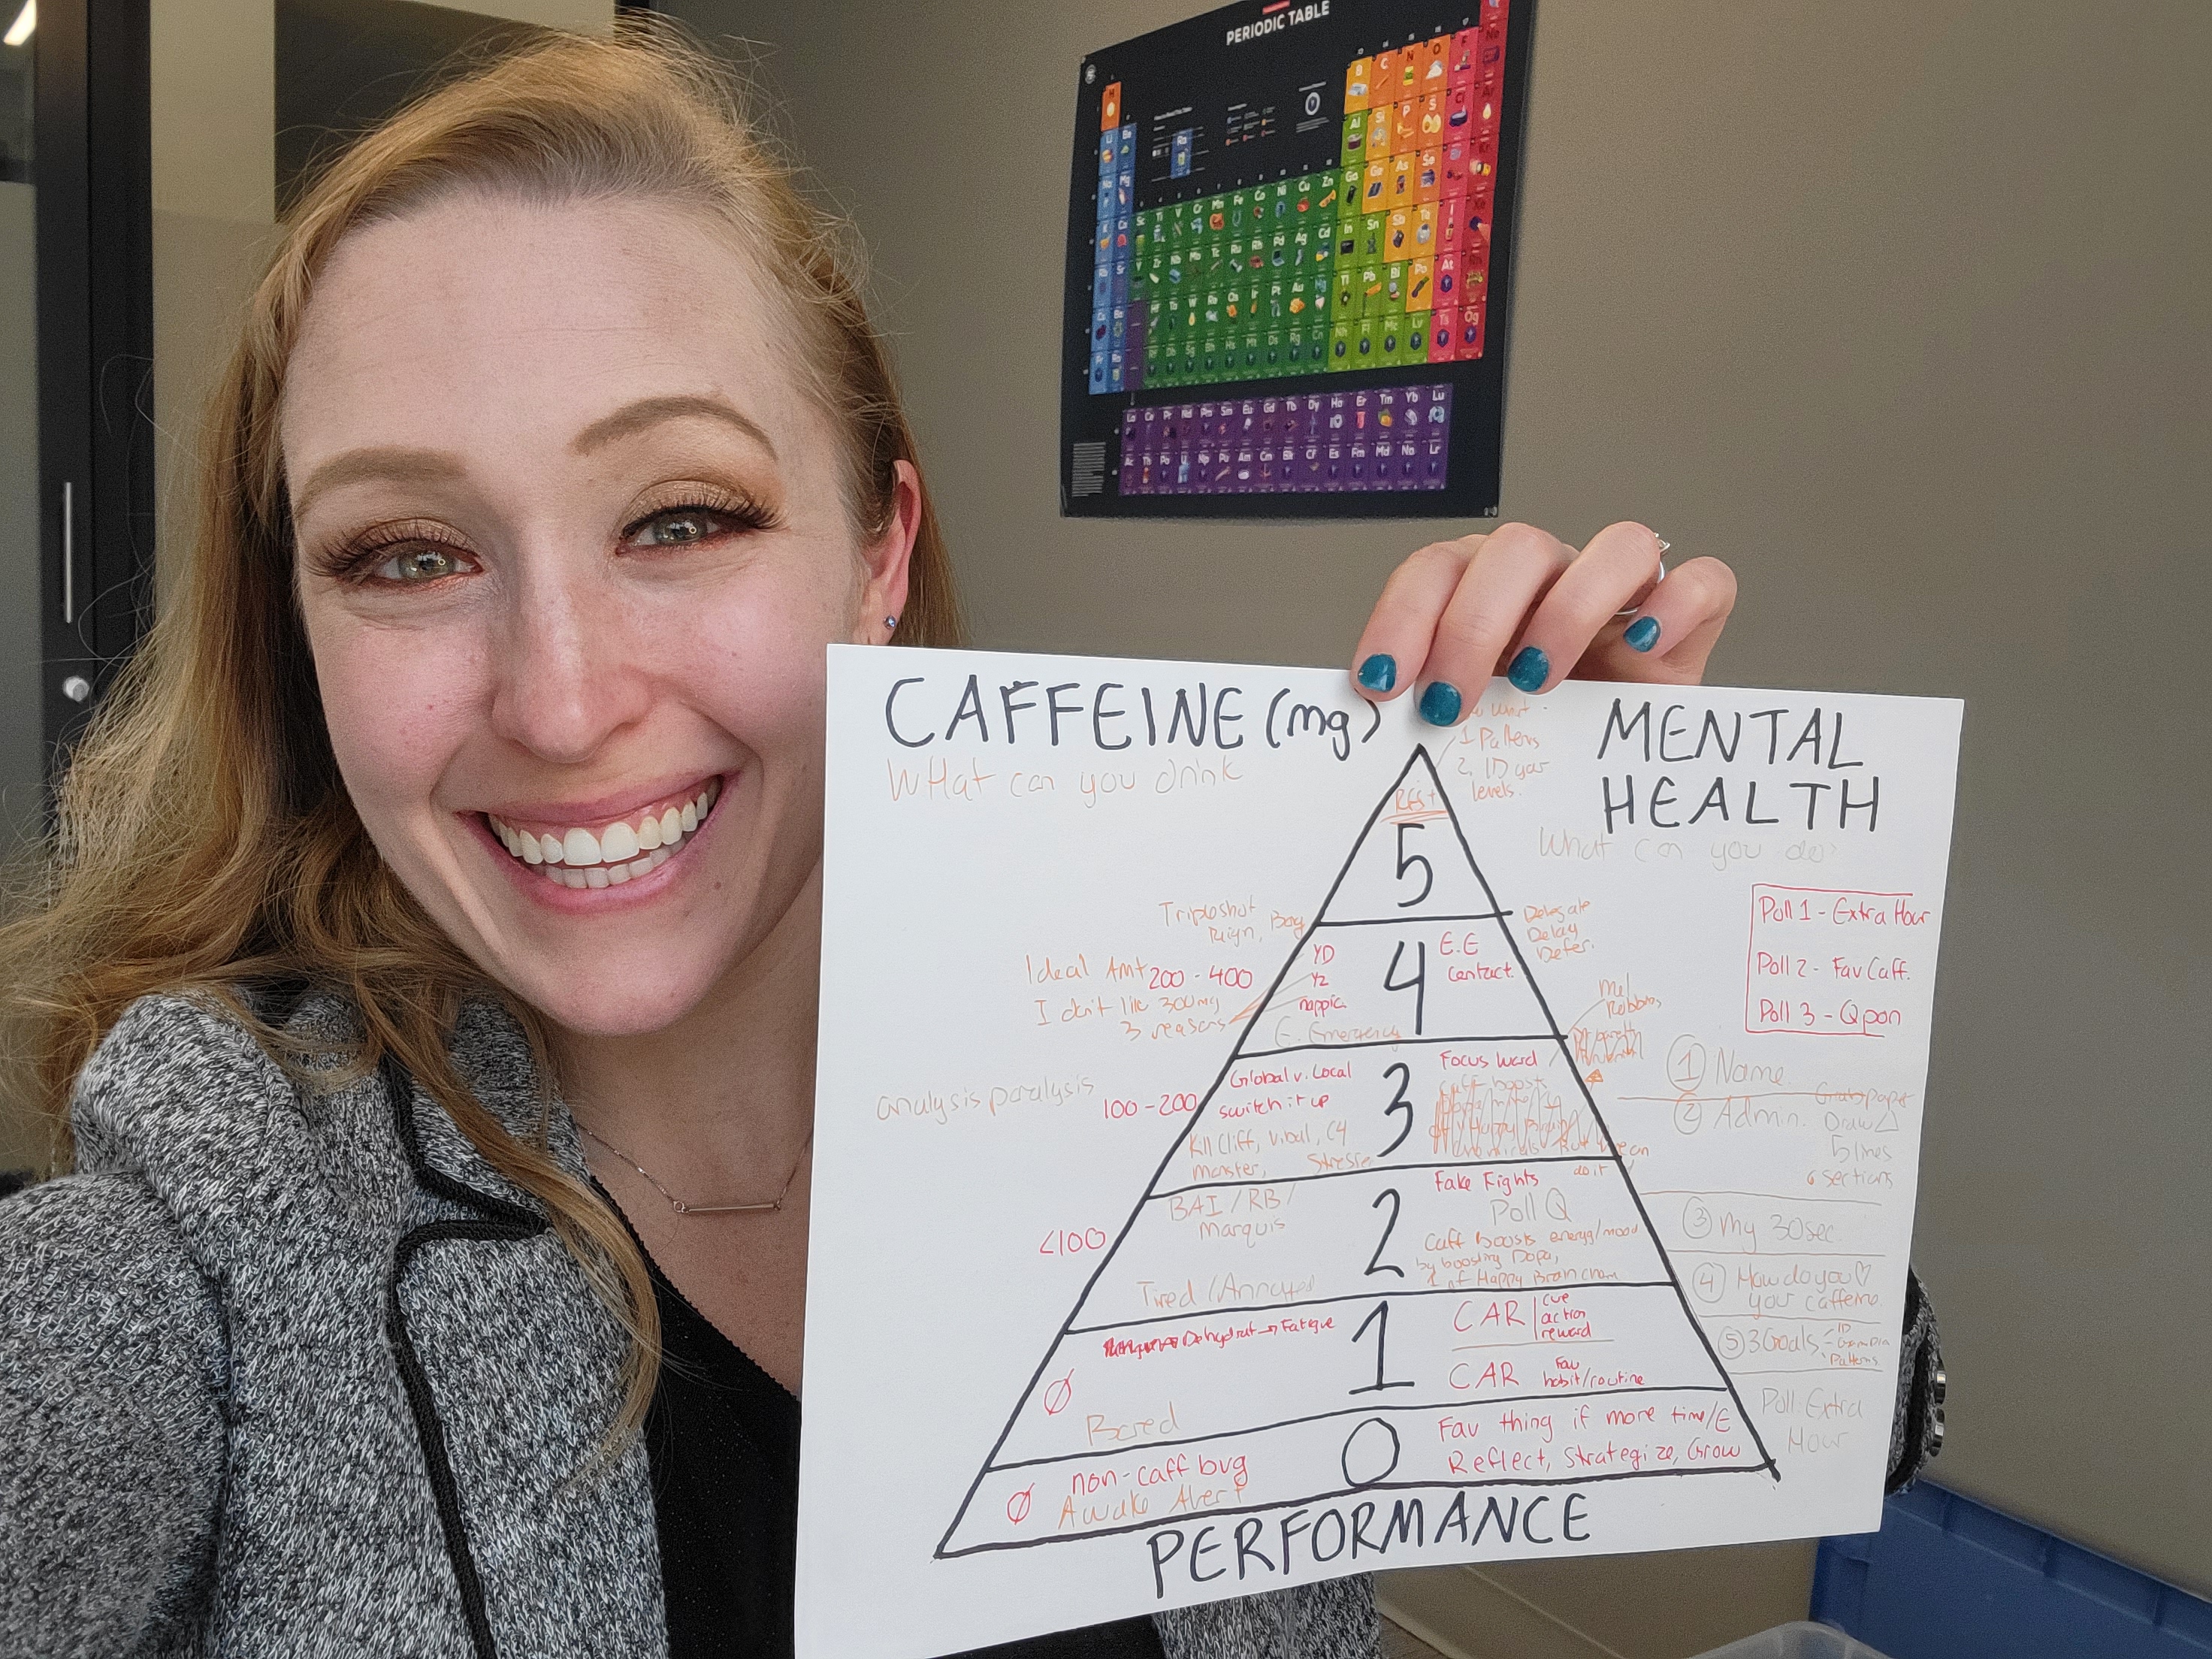 PERIODIC TABLE
CAFFEINE (mg)
What can you drink
MENTAL
HEALTH
What can you do?
2. ID your
levels.
5
Tripleshot
Reign, Bang
Ideal Amt 200 - 400
I don't like 300mg
3 reasons
YD
Y2
nappic.
E. Emergency
4
E.E
Contact
Delegate
Delay
Defer.
Mel
Robbins
Poll 1 - Extra Hour
Poll 2 - Fav Caff.
Poll 3 - Qpon
analysis paralysis
100 - 200
Global v. Local
switch it up
Kill Cliff, C4
monster,
3
Focus Word
do it
<100
BAI / RB /
Marquis
Tired / Annoyed
2
Fake Fights
Poll Q
Caff Boosts energy/mood
by boosting Dopa,
1 of Happy Brain chem
Dehydrat → Fatigue
Ø
Bored
1
CAR
cue
action
reward
CAR
Fav
habit/routine
Ø non-caff bvg
Awake Alert
0
Fav thing if more time/E
Reflect, Strategize, Grow
PERFORMANCE
1 Name
2 Admin.
Draw △
5 lines
6 sections
3 My 30sec.
4 How do you ♡
your caffeine
5 3 Goals
ID
Patterns
Poll: Extra
Hour